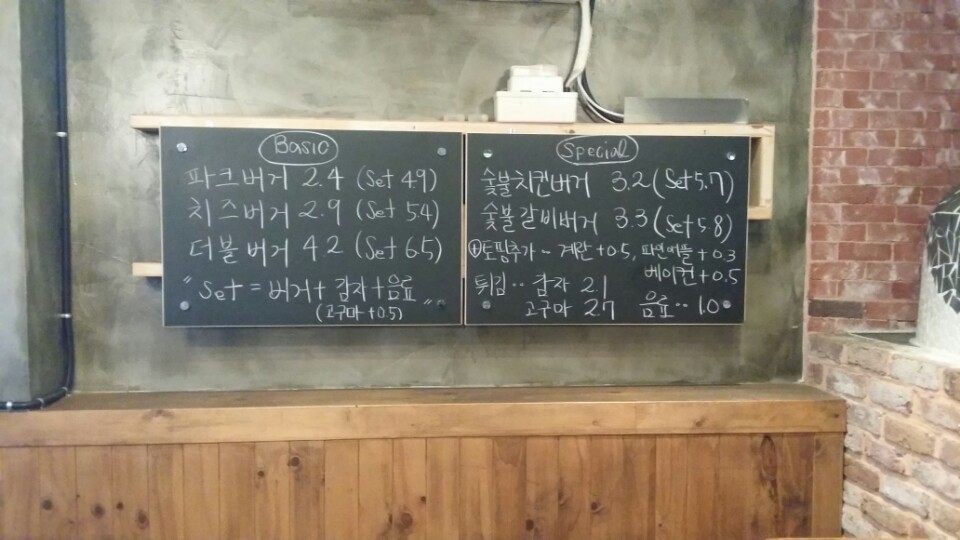 Basic
파크버거 2.4 (Set 4.9)
치즈버거 2.9 (Set 5.4)
더블버거 4.2 (Set 6.5)
" Set = 버거 + 감자 + 음료 "
(고구마 +0.5)
Special
숯불치킨버거 3.2 (Set 5.7)
숯불갈비버거 3.3 (Set 5.8)
⊕토핑추가 ~ 계란 +0.5, 파인애플 +0.3
베이컨 +0.5
튀김·· 감자 2.1
고구마 2.7 음료·· 1.0